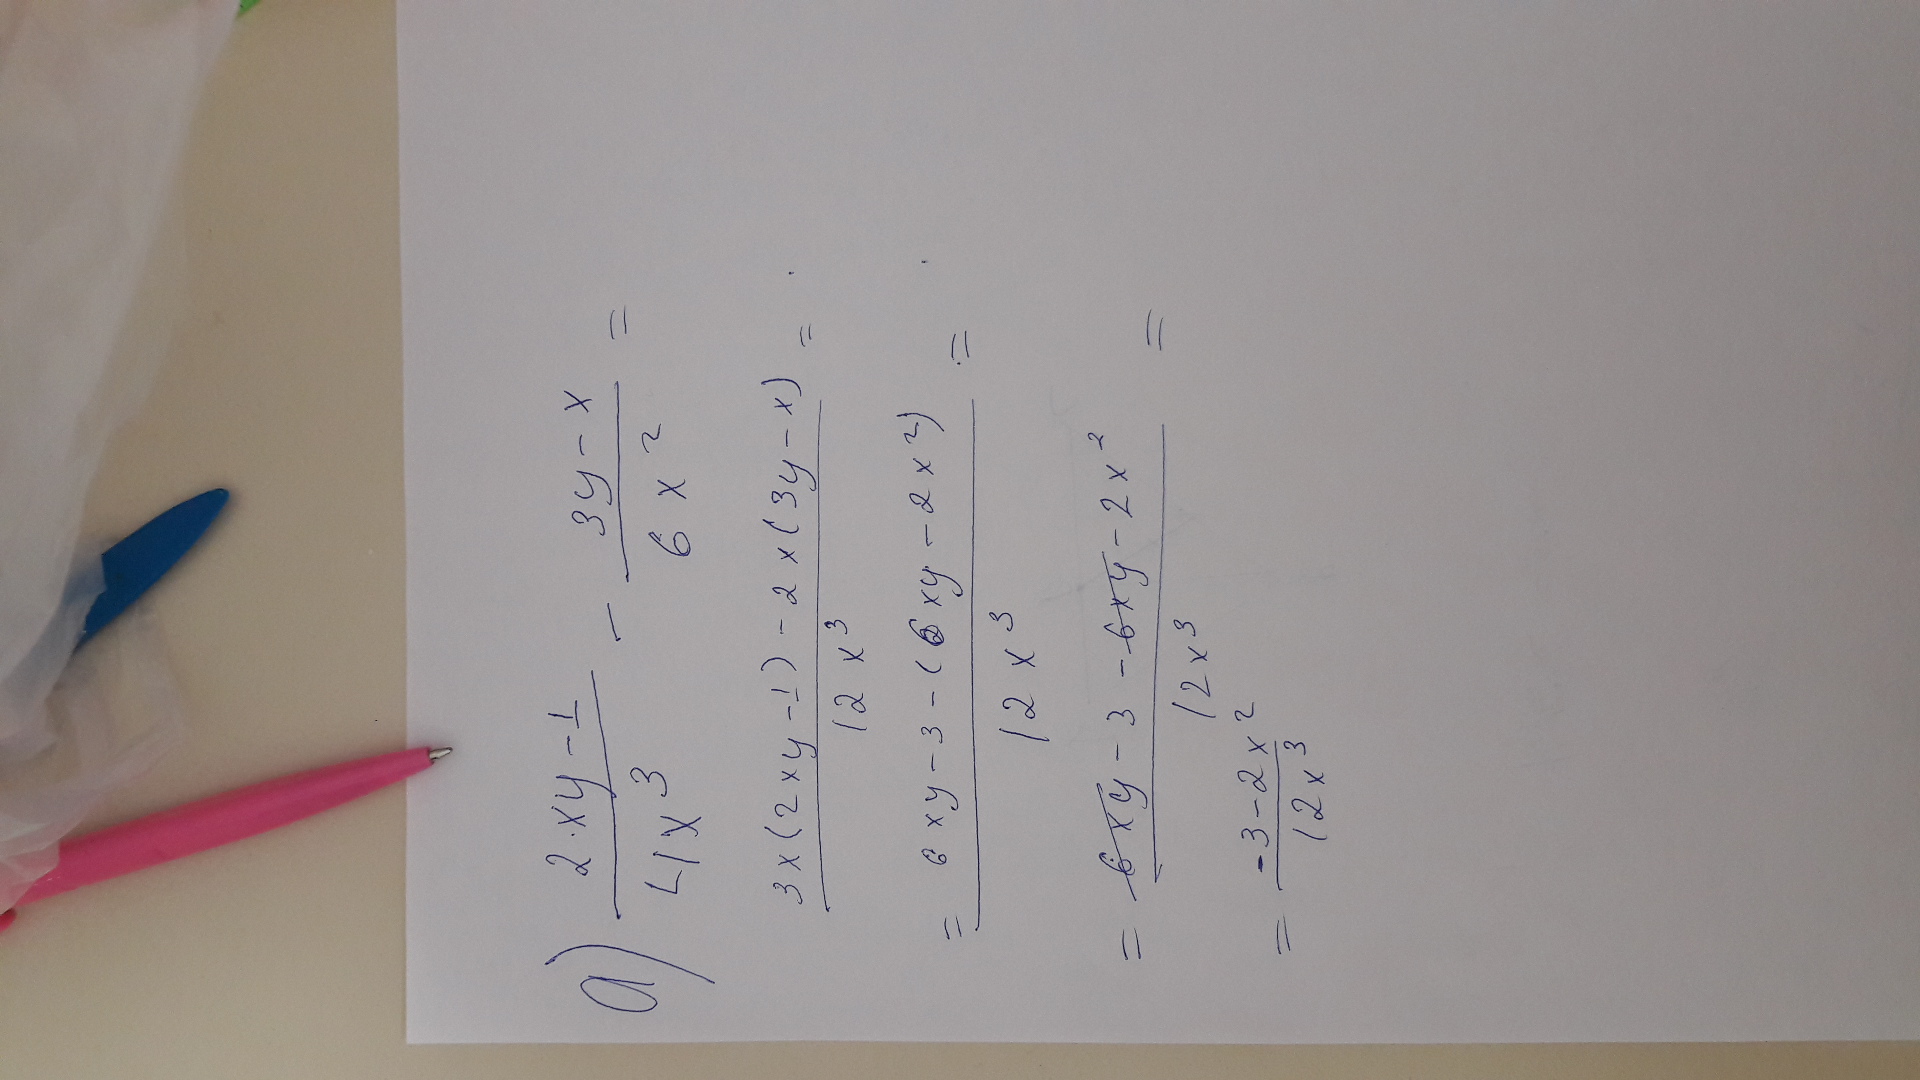 a) 2xy-1/4x³ - 3y-x/6x² =
3x(2xy-1)-2x(3y-x)/12x³ =
= 6xy-3-(6xy-2x²)/12x³ =
= 6xy-3-6xy-2x²/12x³ =
= -3-2x²/12x³